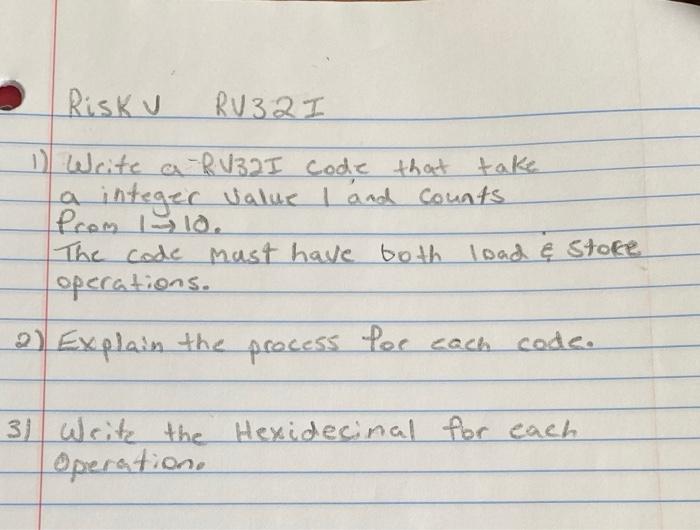 Risk V RV32I
1) Write a RV32I code that take
a integer value 1 and counts
from 1→10.
The code must have both load & store
operations.
2) Explain the process for each code.
3) Write the Hexidecinal for each
operation.